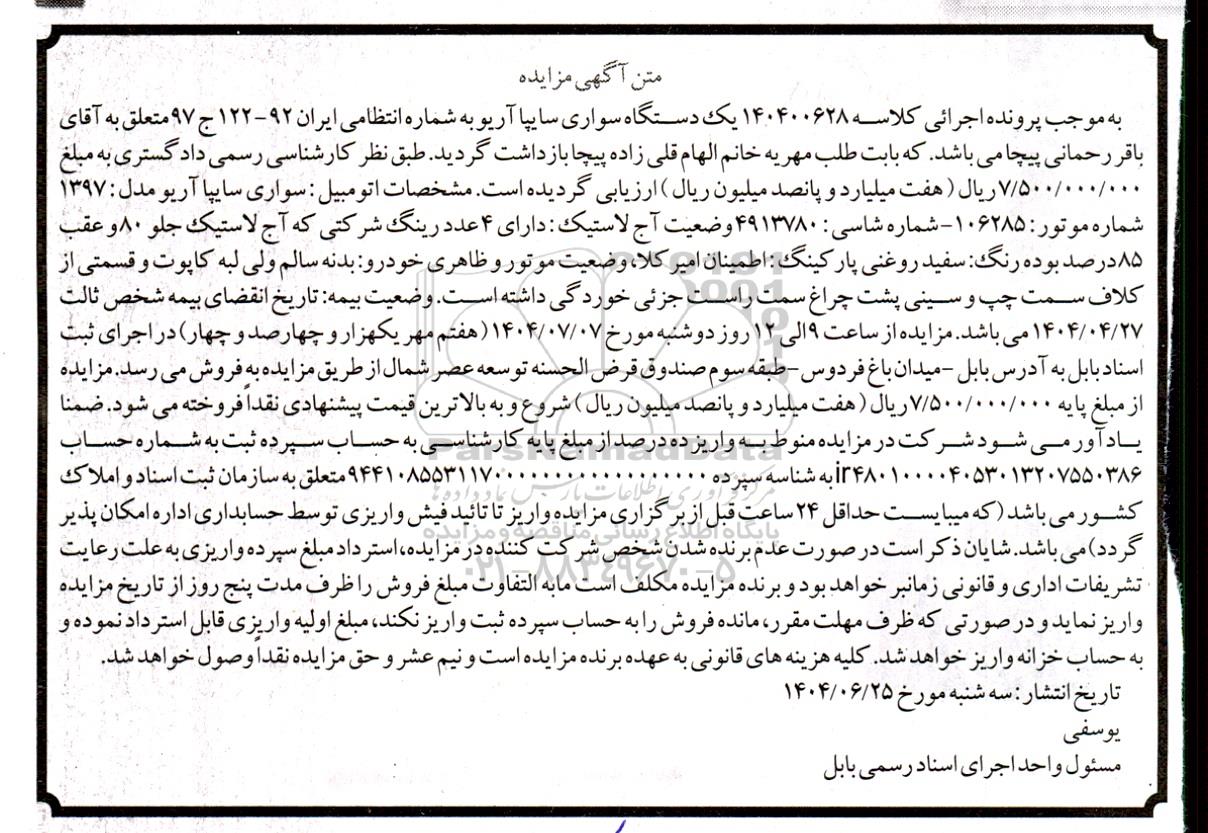 متن آگهی مزایده
به موجب پرونده اجرائی کلاسه ۱۴۰۴۰۰۶۲۸ یک دستگاه سواری سایپا آریو به شماره انتظامی ایران ۹۲-۱۲۲ ج ۹۷ متعلق به آقای
باقر رحمانی پیچا می باشد. که بابت طلب مهریه خانم الهام قلی زاده پیچا بازداشت گردید. طبق نظر کارشناسی رسمی دادگستری به مبلغ
۷/۵۰۰/۰۰۰/۰۰۰ ریال (هفت میلیارد و پانصد میلیون ریال) ارزیابی گردیده است. مشخصات اتومبیل: سواری سایپا آریو مدل: ۱۳۹۷
شماره موتور: ۱۰۶۲۸۵-شماره شاسی: ۴۹۱۳۷۸۰ وضعیت آج لاستیک: دارای ۴ عدد رینگ شرکتی که آج لاستیک جلو ۸۰ و عقب
۸۵ درصد بوده رنگ: سفید روغنی پارکینگ: اطمینان امیرکلا، وضعیت موتور و ظاهری خودرو: بدنه سالم ولی لبه کاپوت و قسمتی از
کلاف سمت چپ و سینی پشت چراغ سمت راست جزئی خوردگی داشته است. وضعیت بیمه: تاریخ انقضای بیمه شخص ثالث
۱۴۰۴/۰۴/۲۷ می باشد. مزایده از ساعت ۹ الی ۱۲ روز دوشنبه مورخ ۱۴۰۴/۰۷/۰۷ (هفتم مهر یکهزار و چهارصد و چهار) در اجرای ثبت
اسناد بابل به آدرس بابل -میدان باغ فردوس-طبقه سوم صندوق قرض الحسنه توسعه عصر شمال از طریق مزایده به فروش می رسد. مزایده
از مبلغ پایه ۷/۵۰۰/۰۰۰/۰۰۰ ریال (هفت میلیارد و پانصد میلیون ریال) شروع و به بالاترین قیمت پیشنهادی نقداً فروخته می شود. ضمنا
یادآور می شود شرکت در مزایده منوط به واریز ده درصد از مبلغ پایه کارشناسی به حساب سپرده ثبت به شماره حساب
ir۴۸۰۱۰۰۰۰۴۰۵۳۰۱۳۲۰۷۵۵۰۳۸۶ به شناسه سپرده ۹۴۴۱۰۸۵۵۳۱۱۷۰۰۰۰۰۰۰۰۰۰۰۰۰۰۰۰۰۰ متعلق به سازمان ثبت اسناد و املاک
کشور می باشد (که میبایست حداقل ۲۴ ساعت قبل از برگزاری مزایده واریز تا تائید فیش واریزی توسط حسابداری اداره امکان پذیر
گردد) می باشد. شایان ذکر است در صورت عدم برنده شدن شخص شرکت کننده در مزایده، استرداد مبلغ سپرده واریزی به علت رعایت
تشریفات اداری و قانونی زمانبر خواهد بود و برنده مزایده مکلف است مابه التفاوت مبلغ فروش را ظرف مدت پنج روز از تاریخ مزایده
واریز نماید و در صورتی که ظرف مهلت مقرر، مانده فروش را به حساب سپرده ثبت واریز نکند، مبلغ اولیه واریزی قابل استرداد نموده و
به حساب خزانه واریز خواهد شد. کلیه هزینه های قانونی به عهده برنده مزایده است و نیم عشر و حق مزایده نقداً وصول خواهد شد.
تاریخ انتشار: سه شنبه مورخ ۱۴۰۴/۰۶/۲۵
یوسفی
مسئول واحد اجرای اسناد رسمی بابل
ParsNamadData
مرکز فرآوری اطلاعات پارس نماد داده ها
پایگاه اطلاع رسانی مناقصه و مزایده
۰۲۱-۸۸۳۴۹۶۷۰-۵